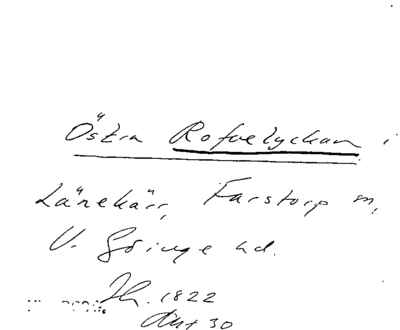 Östra Rofvelyckan i
Länekärr, Farstorp sn,
V. Göinge hd.
Ih. 1822
Akt 30